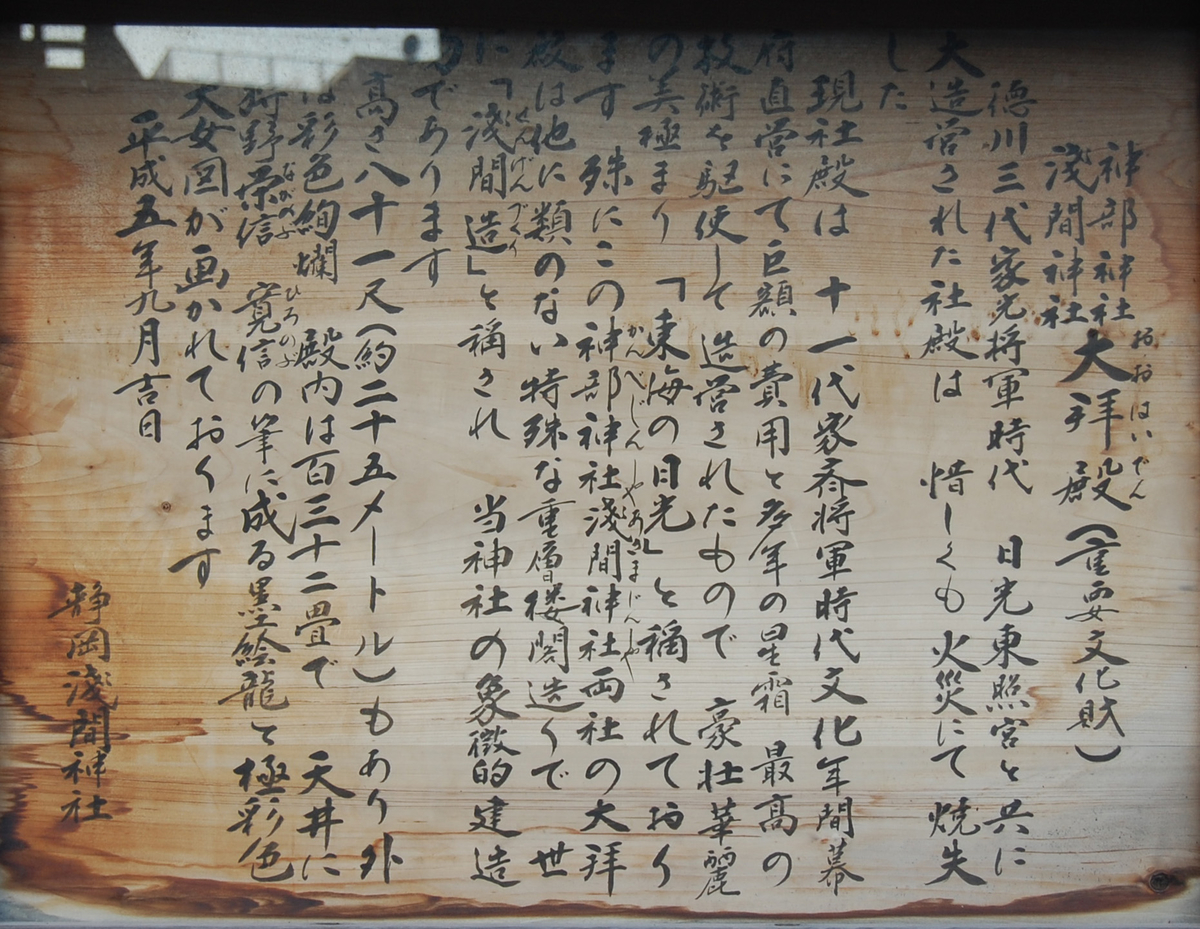 神部神社
淺間神社
大拝殿(重要文化財)
おおはいでん
徳川三代家光将軍時代 日光東照宮と共に
大造営された社殿は 惜しくも火災にて焼失
した
現社殿は 十一代家斉将軍時代文化年間幕
府直営にて巨額の費用と多年の星霜 最高の
技術を駆使して造営されたもので 豪壮華麗
の美極まり 「東海の日光」と稱されており
ます 殊にこの神部神社淺間神社両社の大拝
かんべじんじゃあさまじんじゃ
殿は他に類のない特殊な重層楼閣造りで 世
に「淺間造」と稱され 当神社の象徴的建造
せんげんづくり
であります
高さ八十一尺(約二十五メートル)もあり外
は彩色絢爛 殿内は百三十二畳で 天井に
狩野榮信 寛信の筆に成る墨絵龍と極彩色
ながのぶ ひろのぶ
天女図が画かれております
平成五年九月吉日
静岡淺間神社